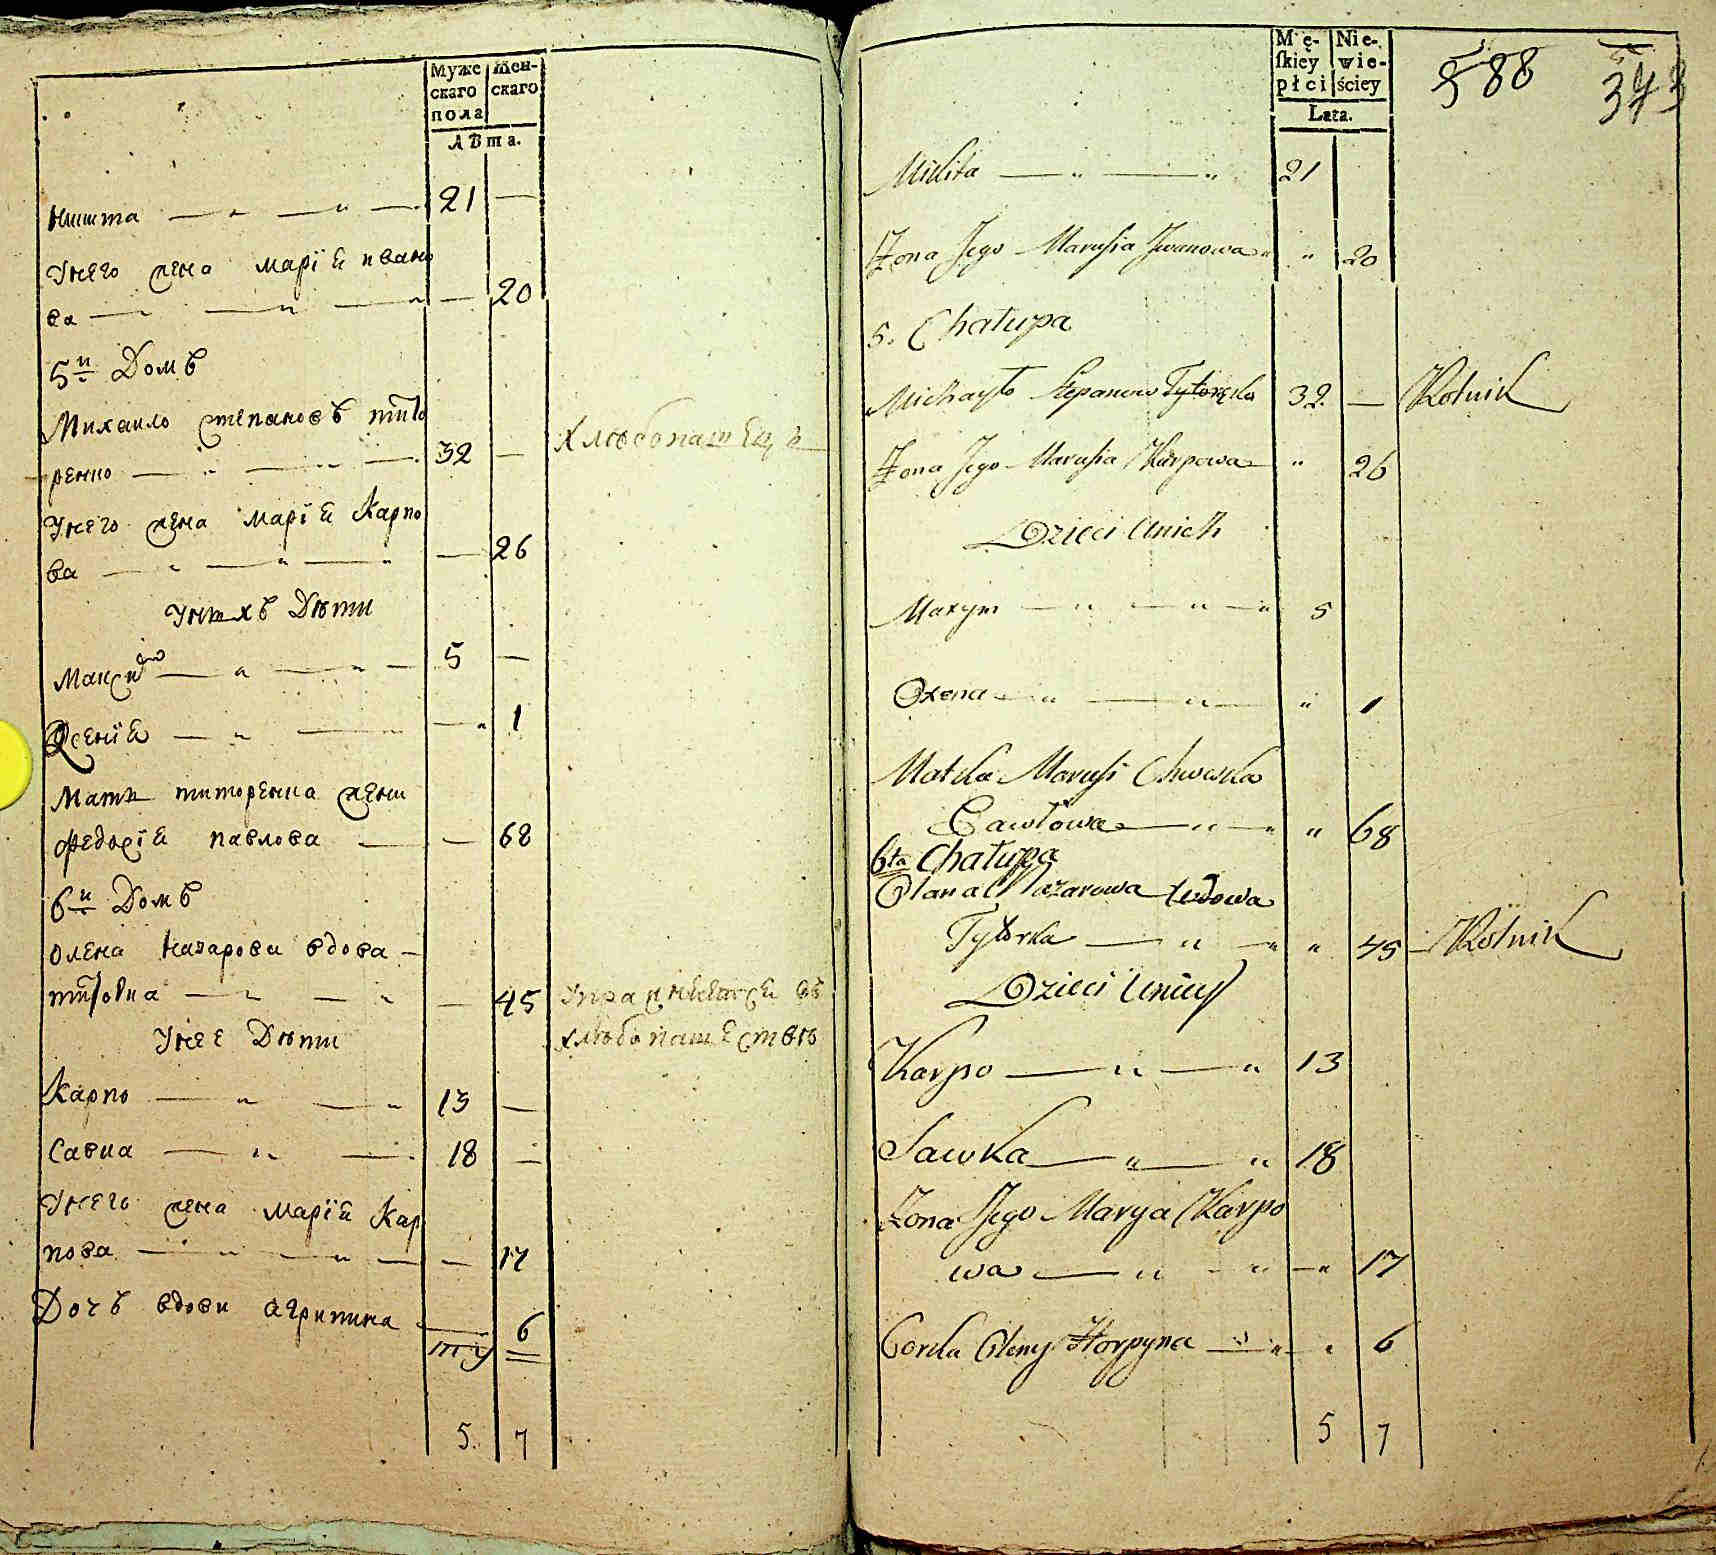 Муже
скаго
пола
Жен-
скаго
лѣта.
Никита — „ — „ — 21 —
Унего жена Марїя Ивано
ва — „ — „ — „ — 20
5й Домъ
Михаило Степановъ тито
ренко — „ — „ — 32 — хлѣбопашецъ
Унего жена Марїя Карпо
ва — „ — „ — „ — 26
Унихъ Дѣти
Максим — „ — „ — 5 —
Ѯенїя — „ — „ — „ 1
Мати титоренка жени
Федосїя павлова — — 68
6й Домъ
Олена Назарова вдова —
титовка — „ — „ — 45 Упражняется въ
Унее Дѣти хлѣбопашествѣ
Карпо — „ — „ 13 —
Савка — „ — 18 —
Унего жена Марїя Кар
пова — „ — „ — — 17
Дочъ вдови Агрипина — 6
ту
5. 7
Mę-
skiey
płci
Nie-
wie-
ściey
Lata.
588
343
Mikita — „ — „ 21
Żona Jego Marusia Jwanowa „ „ 20
5. Chałupa
Michayło Stepanow Tytoręko 32 — Rolnik
Żona Jego Marusia Karpowa — „ 26
Dzieci Unich
Maxym — „ — „ — „ 5
Oxena — „ — „ — „ 1
Matka Marusi Chweska
Pawłowa — „ — „ „ 68
6ta Chałupa
Olana Nazarowa wdowa
Tytorka — „ — „ „ 45 — Rolnik
Dzieci Uniey
Karpo — „ — „ 13
Sawka — „ — „ 18
Żona Jego Marya Karpo
wa — „ — „ — „ 17
Corka Oleny Horpyna — „ — „ 6
5 7